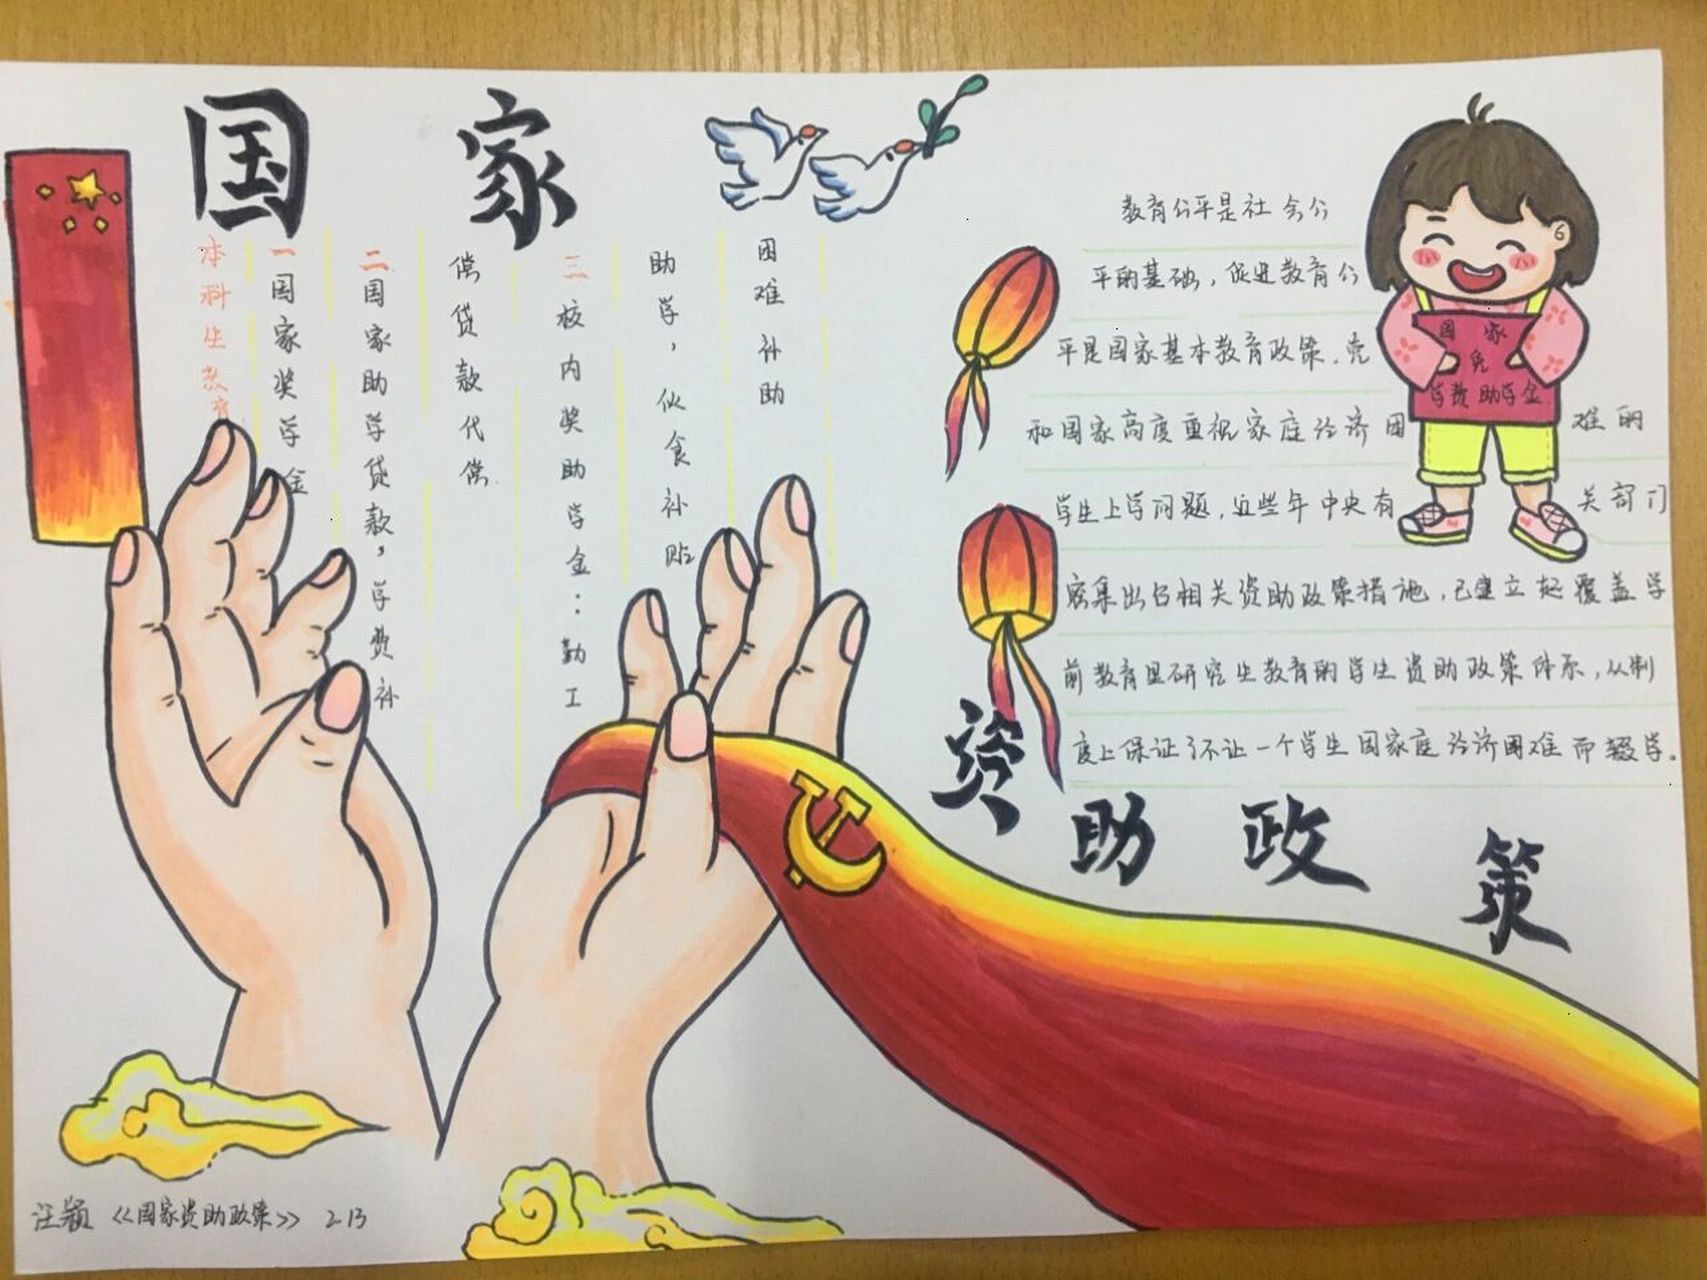 国家
本科生教育
一国家奖学金
二国家助学贷款，学费补
偿贷款代偿
三校内奖助学金：勤工
助学，伙食补贴
困难补助
教育公平是社会公
平的基础，促进教育公
平是国家基本教育政策．党
和国家高度重视家庭经济困难的
学生上学问题，近些年中央有关部门
密集出台相关资助政策措施，已建立起覆盖学
前教育至研究生教育的学生资助政策体系，从制
度上保证了不让一个学生因家庭经济困难而辍学。
国家
免
学费助学金
资助政策
汪颖《国家资助政策》 213